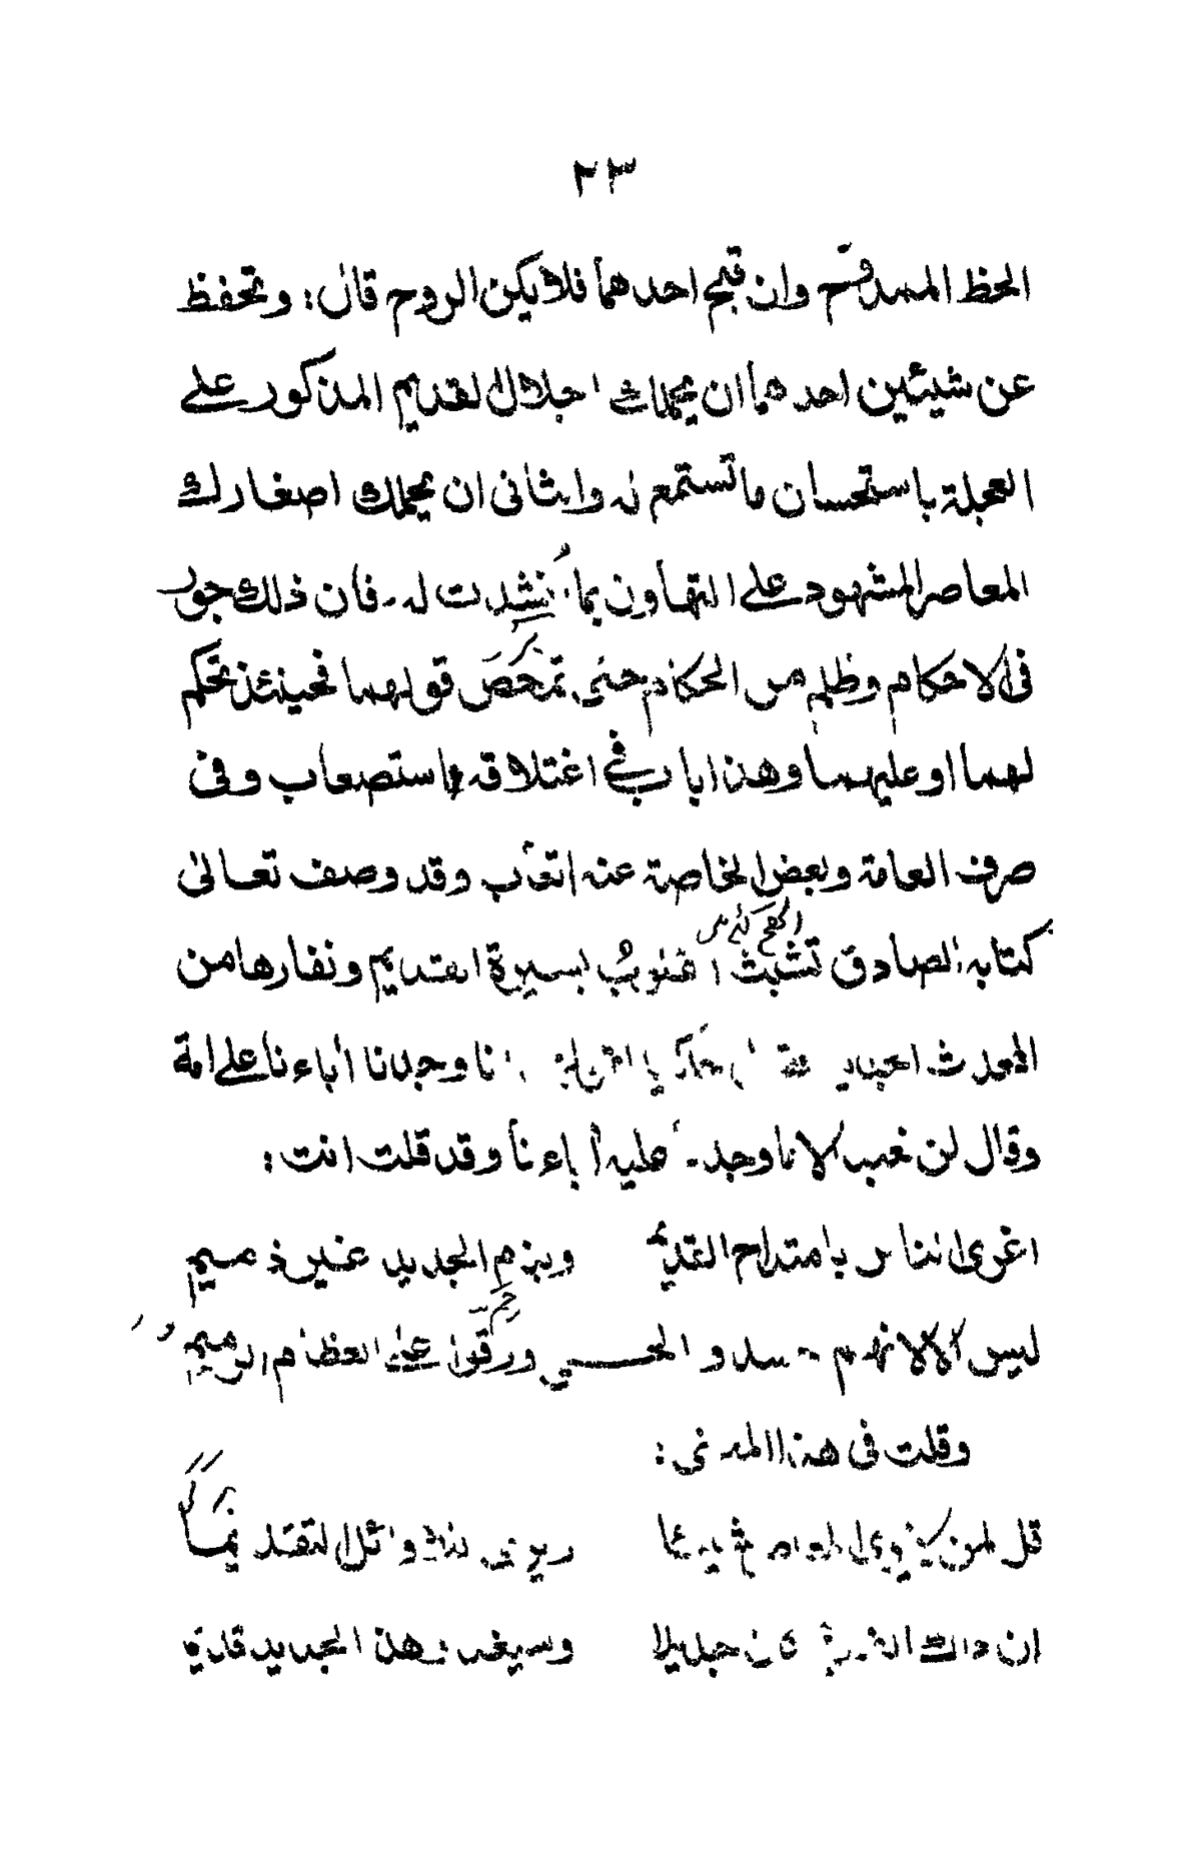 ٢٣
الحظ الممدوح وان قبح احدهما فلا يكن الروح قال: وتحفظ
عن شيئين احدهما ان يحملك اجلال القديم المذكور على
العجلة باستحسان ما تستمع له والثانى ان يحملك اصغارك
المعاصر المشهود على التهاون بما انشدت له فان ذلك جور
فى الاحكام وظلم من الحكام حتى تمحص قولهما فحينئذ تحكم
لهما او عليهما وهذا باب فى اغتلاقه استصعاب وفى
صرف العامة وبعض الخاصة عنه اتعاب وقد وصف تعالى
كتابه الصادق تشبث القلوب بسيرة القديم ونفارها من
المحدث الجديد فقال حاكيا انا وجدنا اٰباءنا على امة
وقال لن نعبد الا ما وجدنا عليه اٰباءنا وقد قلت انت:
اغرى الناس بامتداح القديم وبذم الجديد غير ذميم
ليس الا لانهم حسدوا الحى ورقوا على العظام الرميم
وقلت فى هذا المعنى:
قل لمن لا يرى المعاصر شيئا ويرى للاوائل التقديما
ان ذاك القديم كان جديدا وسيغدو هذا الجديد قديما